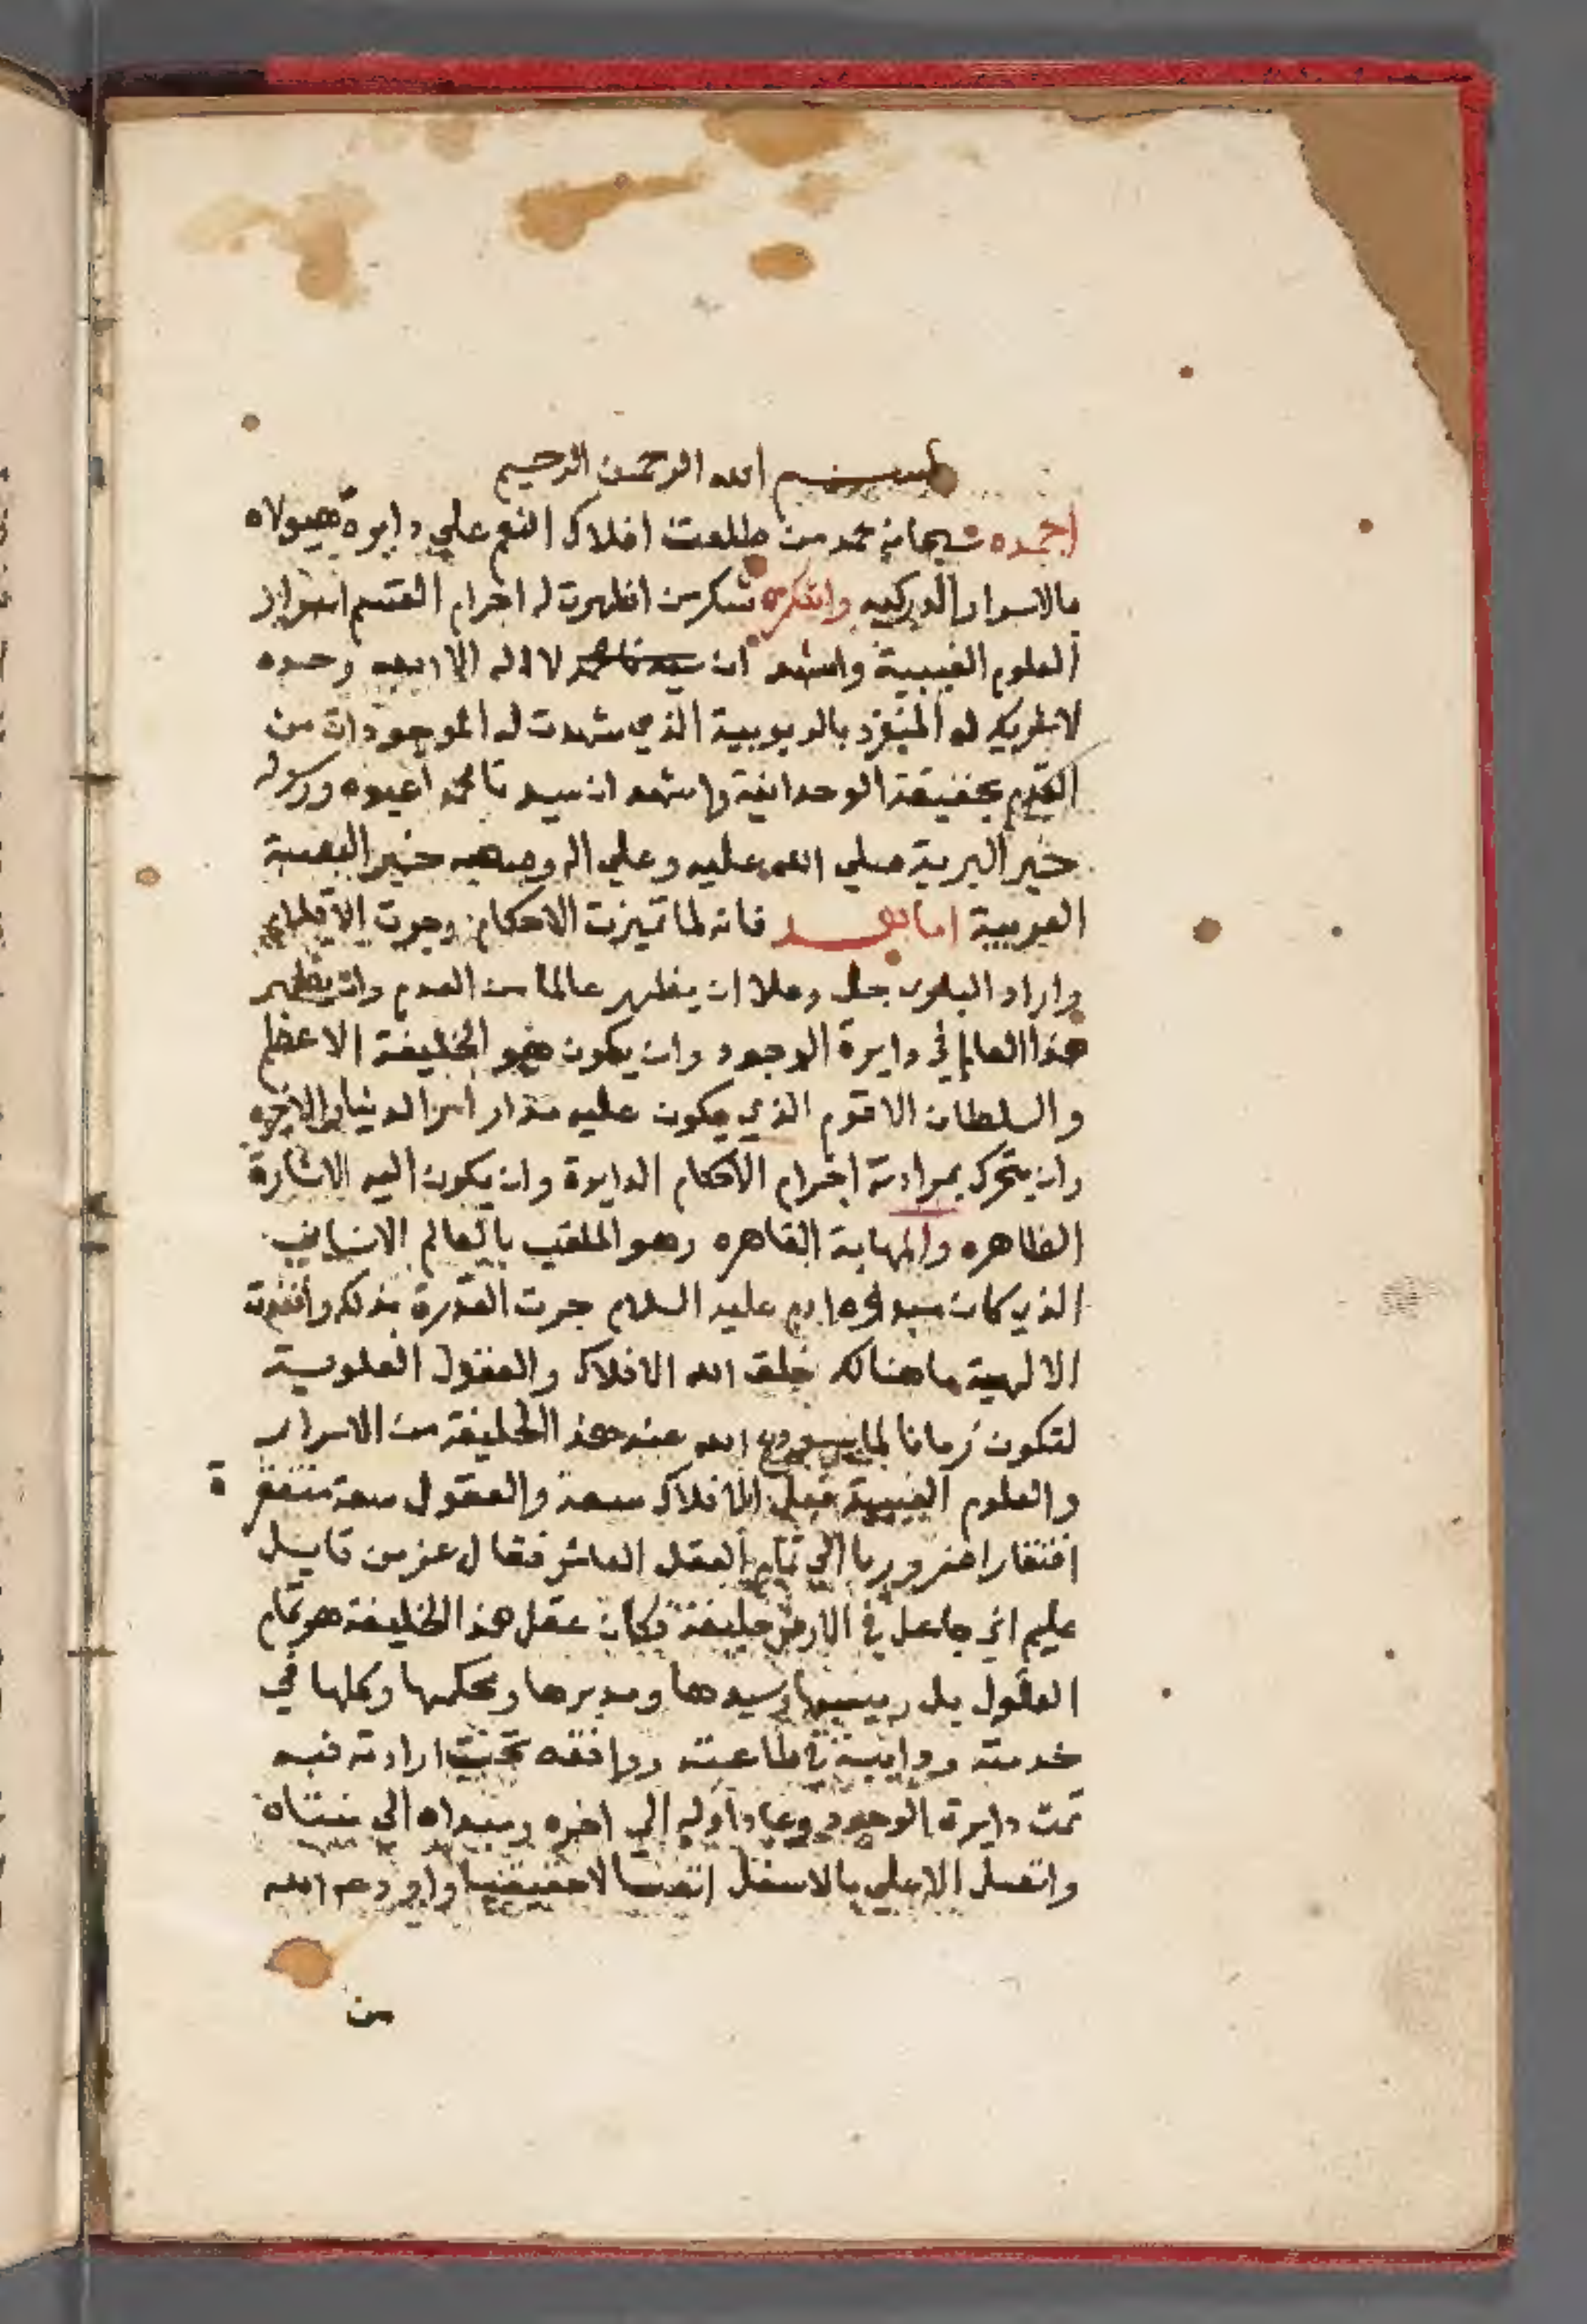 بسم الله الرحمن الرحيم
احمده سبحانه حمد من طلعت افلاك النعم علي دايرة هيولاه
بالاسرار الدركيه واشكره شكر من اظهرت له اجرام القسم اسرار
العلوم الغيبية واشهد ان لا اله الا الله وحده
لا شريك له المنفرد بالربوبية الذي شهدت له الموجودات من
القدم بحقيقة الوحدانية واشهد ان سيدنا محمدا عبده ورسوله
خير البرية صلي الله عليه وعلي اله وصحبه خير العصبة
العربية اما بعد فانه لما تميزت الاحكام وجرت الاقلام
واراد الباري جل وعلا ان يظهر عالما من العدم وان يظهر
هذا العالم في دايرة الوجود وان يكون هو الخليفة الاعظم
والسلطان الاقوم الذي يكون عليه مدار امر الدنيا والاخره
وان يتحرك بمرادته اجرام الاحكام الدايرة وان يكون اليه الاشارة
الظاهره والمهابة القاهره وهو الملقب بالعالم الانساني
الذي كان مبدؤه ادم عليه السلام جرت القدرة بذلك
الالهية ما هنالك خلق الله الافلاك والعقول العلوية
لتكون زمانا لما الله عند هذا الخليفة من الاسرار
والعلوم الغيبية فجعل الافلاك سبعة والعقول سبعة مفتقرة
افتقارا ضروريا الي تمام العقل العاشر فقال عز من قايل
عليم اني جاعل في الارض خليفة فكان عقل هذا الخليفة هو تمام
العقول بل رييسها وسيدها ومدبرها ومحكمها وكلها في
خدمته ودايبة في طاعته وواقفه تحت ارادته فبه
تمت دايرة الوجود وعاد اوله الي اخره ومبداه الي منتهاه
واتصل الاعلي بالاسفل اتصالا حقيقيا واودعه الله
من